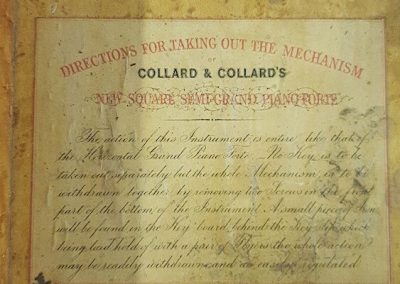 DIRECTIONS FOR TAKING OUT THE MECHANISM
OF
COLLARD & COLLARD'S
NEW SQUARE SEMI-GRAND PIANOFORTE
The action of this Instrument is entire like that of
the Horizontal Grand Piano Forte. No Key is to be
taken out separately but the whole Mechanism is to be
withdrawn together by removing two Screws in the front
part of the bottom of the Instrument A small piece of
will be found in the Key board behind the Key which
being laid hold of with a pair of Plyers the whole action
may be readily withdrawn and as easily regulated